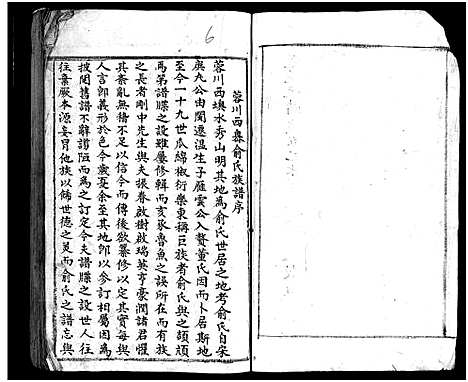 6
蓉川西嶴俞氏族譜序
蓉川西墺水秀山明其地為俞氏世居之地考俞氏自宋
虞九公由閩遷温生子雁雲公入贅董氏因而卜居斯地
至今一十九世瓜綿椒衍樂東稱巨族者俞氏與之頡頏
焉第譜牒之設雖屢修輯而亥豕魯魚之誤所在而有族
之長者剛中先生與夫振春啟樹啟瑞英亨豪潤諸君懼
其紊亂無稽不足以信今而傳後欲纂修以定其實每與
人言郎義形於色今歲余至其地卽以參訂相屬因為
披閱舊譜不辭謭陋而為之訂定今夫譜牒之設世人往
往棄厥本源妄冒他族以飾世德之美而俞氏之譜忘與